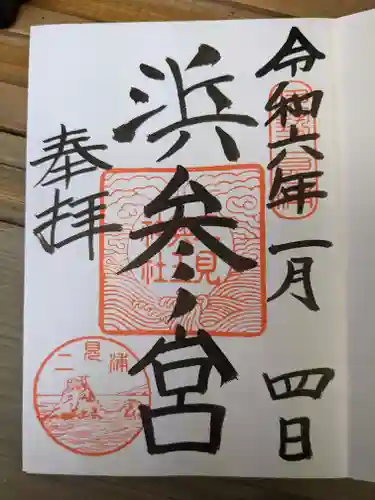 令和六年一月四日
浜参宮
奉拝
二見浦